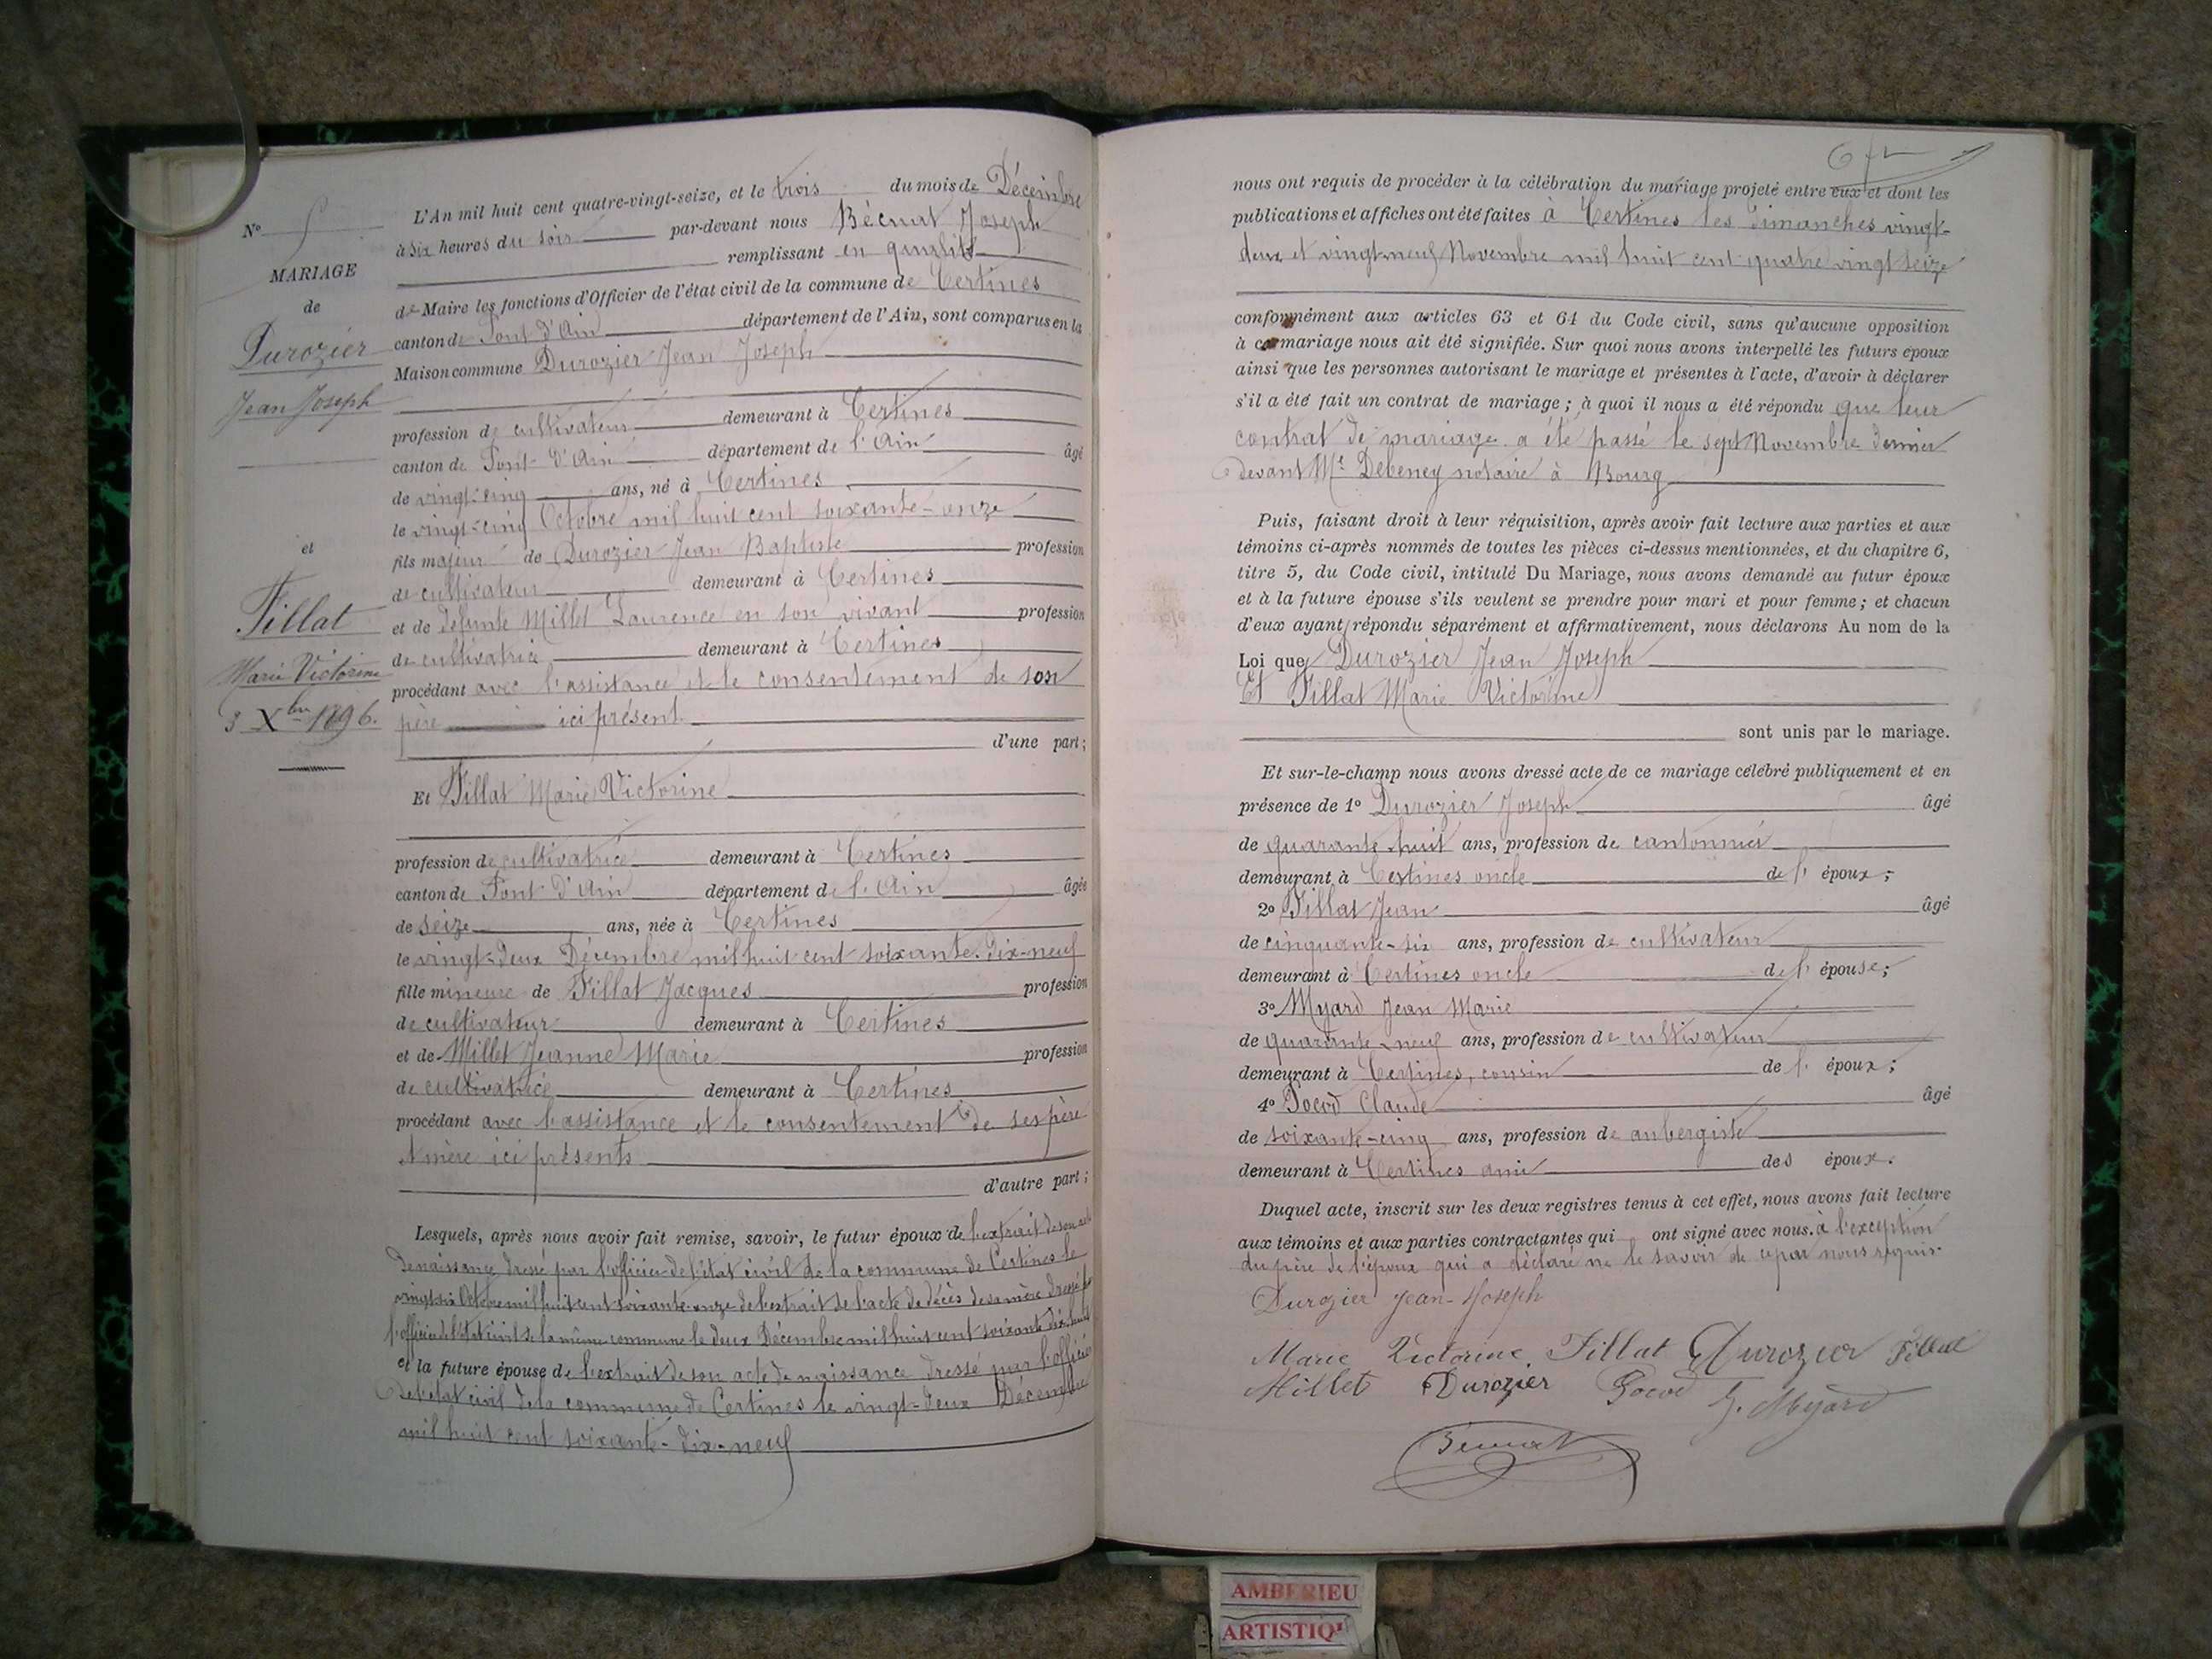 L'An mil huit cent quatre-vingt-seize, et le trois du mois de Décembre
à six heures du soir par-devant nous Bécuat Joseph
remplissant en qualité
de Maire les fonctions d'Officier de l'état civil de la commune de Certines
canton de Pont d'Ain département de l'Ain, sont comparus en la
Maison commune Durozier Jean Joseph
profession de cultivateur demeurant à Certines
canton de Pont-d'Ain département de l'Ain âgé
de vingt-cinq ans, né à Certines
le vingt-cinq Octobre mil huit cent soixante-onze
fils majeur de Durozier Jean Baptiste profession
de cultivateur demeurant à Certines
et de défunte Millet Laurence en son vivant profession
de cultivatrice demeurant à Certines
procédant avec l'assistance et le consentement de son
père ici présent
d'une part;
Et Fillat Marie Victorine
profession de cultivatrice demeurant à Certines
canton de Pont-d'Ain département de l'Ain âgée
de seize ans, née à Certines
le vingt-deux Décembre mil huit cent soixante-dix-neuf
fille mineure de Fillat Jacques profession
de cultivateur demeurant à Certines
et de Millet Jeanne Marie profession
de cultivatrice demeurant à Certines
procédant avec l'assistance et le consentement de ses père
et mère ici présents
d'autre part;
Lesquels, après nous avoir fait remise, savoir, le futur époux de l'extrait de son acte
de naissance dressé par l'officier de l'état civil de la commune de Certines le
vingt-six Octobre mil huit cent soixante-onze de l'extrait de l'acte de décès de sa mère dressé par
l'officier de l'état civil de la même commune le deux Décembre mil huit cent soixante dix-huit
et la future épouse de l'extrait de son acte de naissance dressé par l'officier
de l'état civil de la commune de Certines le vingt-deux Décembre
mil huit cent soixante-dix-neuf
N°
MARIAGE
de
Durozier
Jean Joseph
et
Fillat
Marie Victorine
3 Xbre 1896.
nous ont requis de procéder à la célébration du mariage projeté entre eux et dont les
publications et affiches ont été faites à Certines les Dimanches vingt-
deux et vingt-neuf Novembre mil huit cent quatre vingt seize
conformément aux articles 63 et 64 du Code civil, sans qu'aucune opposition
à ce mariage nous ait été signifiée. Sur quoi nous avons interpellé les futurs époux
ainsi que les personnes autorisant le mariage et présentes à l'acte, d'avoir à déclarer
s'il a été fait un contrat de mariage; à quoi il nous a été répondu que leur
contrat de mariage a été passé le sept Novembre dernier
devant Me Debeney notaire à Bourg
Puis, faisant droit à leur réquisition, après avoir fait lecture aux parties et aux
témoins ci-après nommés de toutes les pièces ci-dessus mentionnées, et du chapitre 6,
titre 5, du Code civil, intitulé Du Mariage, nous avons demandé au futur époux
et à la future épouse s'ils veulent se prendre pour mari et pour femme; et chacun
d'eux ayant répondu séparément et affirmativement, nous déclarons Au nom de la
Loi que Durozier Jean Joseph
Et Fillat Marie Victorine
sont unis par le mariage.
Et sur-le-champ nous avons dressé acte de ce mariage célébré publiquement et en
présence de 1° Durozier Joseph âgé
de quarante-huit ans, profession de cantonnier
demeurant à Certines oncle de l'époux;
2° Fillat Jean âgé
de cinquante-six ans, profession de cultivateur
demeurant à Certines oncle de l'épouse;
3° Myard Jean Marie
de quarante-neuf ans, profession de cultivateur
demeurant à Certines, cousin de l'époux;
4° Pocod Claude âgé
de soixante-cinq ans, profession de aubergiste
demeurant à Certines ami des époux.
Duquel acte, inscrit sur les deux registres tenus à cet effet, nous avons fait lecture
aux témoins et aux parties contractantes qui ont signé avec nous. à l'exception
du père de l'époux qui a déclaré ne le savoir de ce par nous requis.
Durozier Jean-Joseph
Marie Victorine Fillat Durozier Fillat
Millet Durozier Pocod J. Myard
Bécuat
AMBERIEU
ARTISTIQ